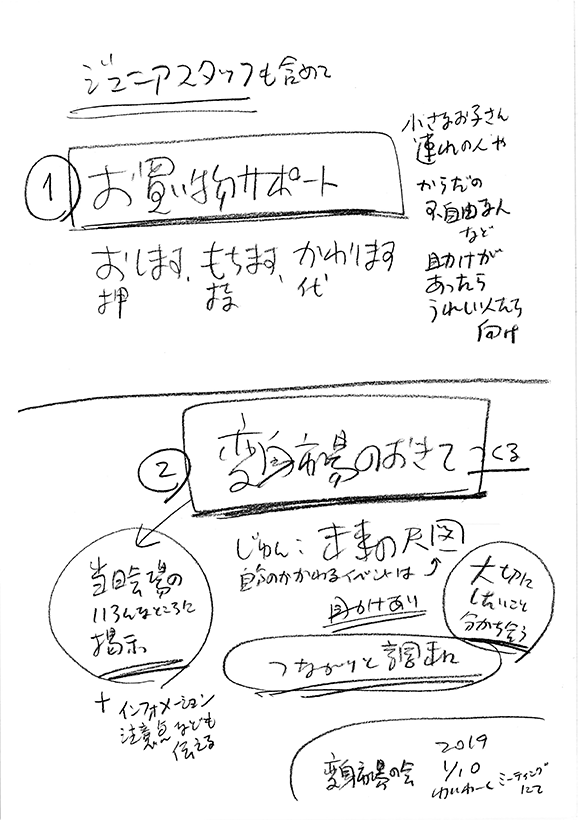 ジュニアスタッフも含めて
1 お買い物サポート
おします、もちます、かわります
押
代
小さなお子さん
連れの人や
からだの
不自由な人
など
助けが
あったら
うれしい人たち
向け
2 変身市場のおきて
つくる
当日会場の
いろんなところに
掲示
+ インフォメーション
注意点なども
伝える
じゅん:
自分のかかわるイベントは
助けあり
大切に
したいこと
分かち合う
つながりと調まれ
変身市場の会
2019
1/10
わいわーく ミーティング
にて